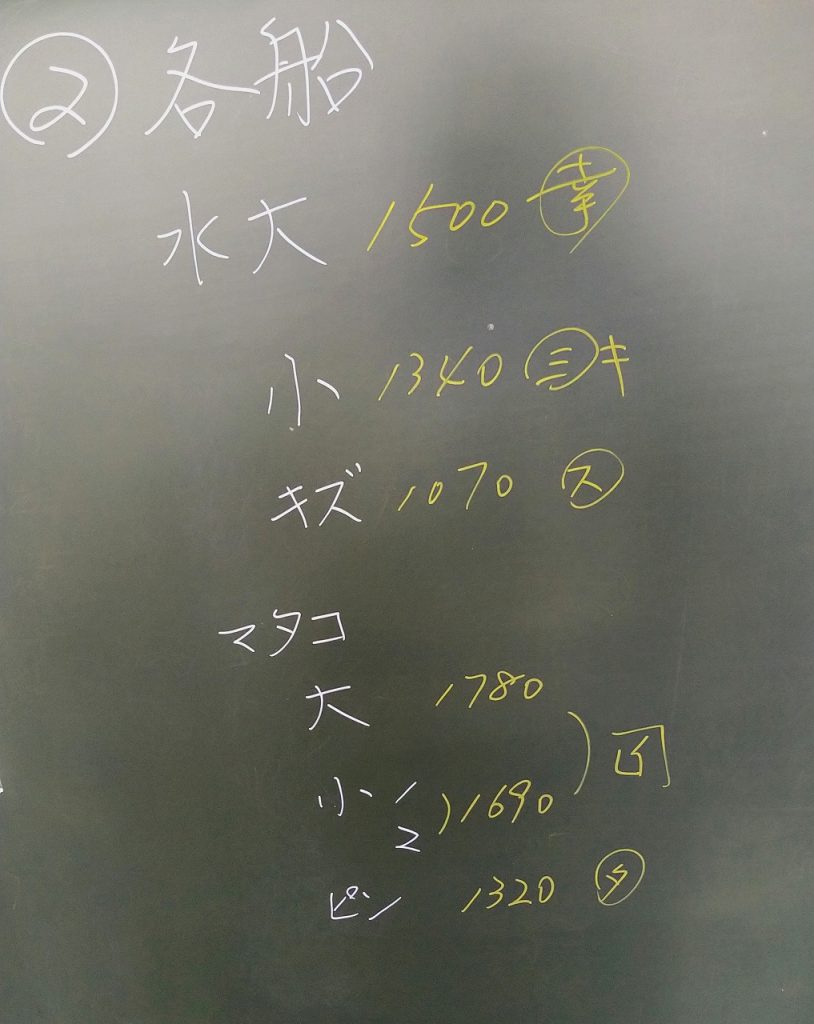 ② 各船
水大 1500 幸
小 1340 三キ
キズ 1070 ス
マタコ
大 1780
小 1
2 1690
ピン 1320 タ